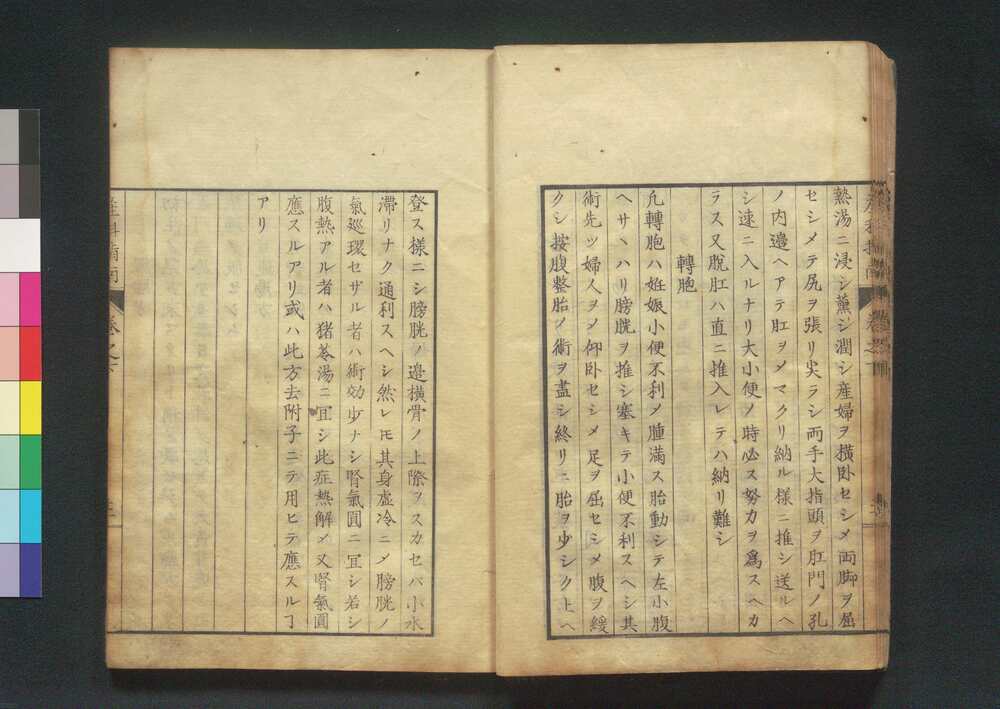 熱湯ニ浸シ薫シ潤シ産婦ヲ橫卧セシメ両脚ヲ屈
セシメテ尻ヲ張リ尖ラシ両手大指頭ヲ肛門ノ孔
ノ内邊ヘアテ肛ヲ〆マクリ納ル様ニ推シ送ルヘ
シ速ニ入ルナリ大小便ノ時必ス努力ヲ為スヘカ
ラス又脱肛ハ直ニ推入レテハ納リ難シ
轉胞
凢轉胞ハ妊娠小便不利〆腫満ス胎動シテ左小腹
ヘサヽハリ膀胱ヲ推シ塞キテ小便不利スヘシ其
術先ツ婦人ヲ〆仰卧セシメ足ヲ屈セシメ腹ヲ緩
クシ按腹整胎ノ術ヲ盡シ終リニ胎ヲ少シク上ヘ
登ス様ニシ膀胱ノ邊橫骨ノ上際ヲスカセバ小水
滞リナク通利スヘシ然レ𪜈其身虚冷ニ〆膀胱ノ
氣廵環セザル者ハ術効少ナシ腎氣圓ニ冝シ若シ
腹熱アル者ハ猪苓湯ニ冝シ此症熱解〆又腎氣圓
應スルアリ或ハ此方去附子ニテ用ヒテ應スルヿ
アリ
産科指南
卷之下